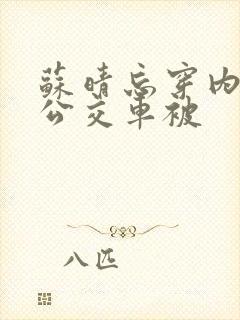 蘇晴忘穿内
公交車被
八匹